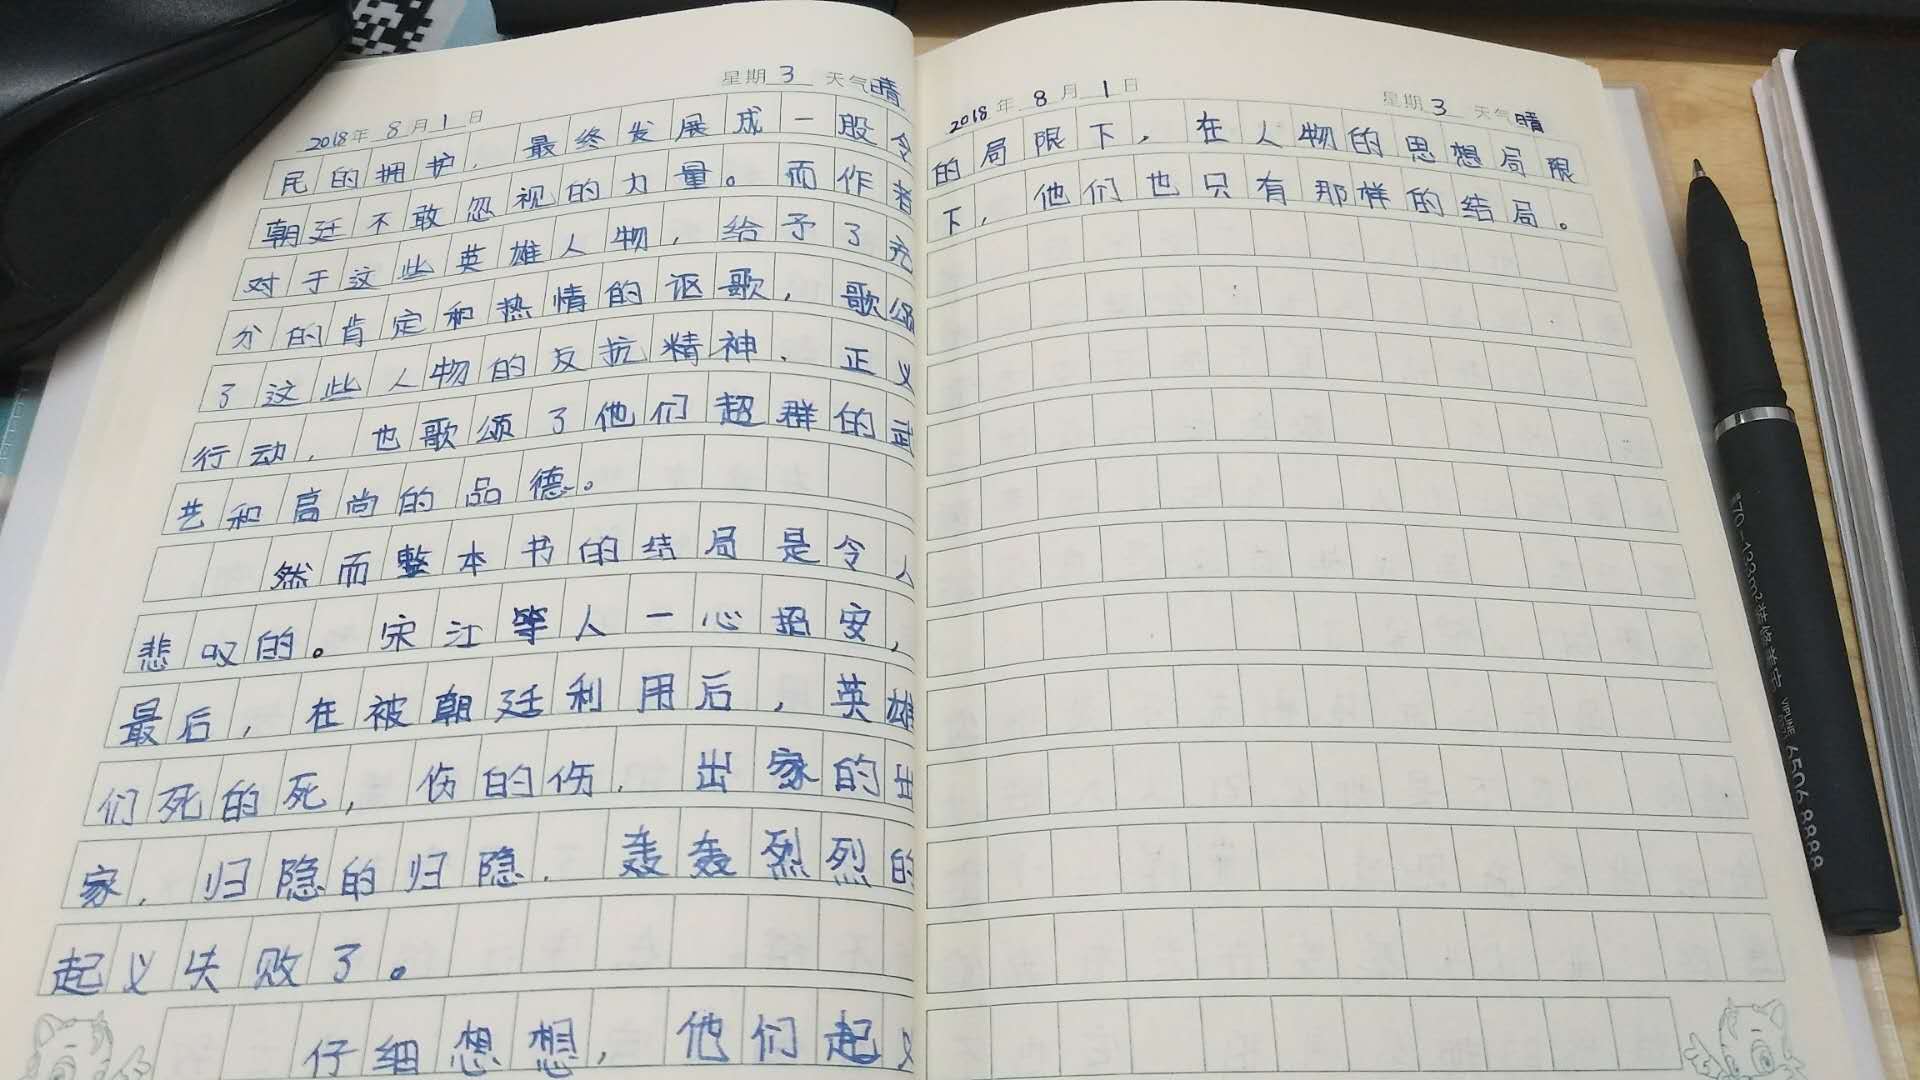 2018年 8月 1日 星期 3 天气 晴
民的拥护，最终发展成一股令
朝廷不敢忽视的力量。而作者
对于这些英雄人物，给予了充
分的肯定和热情的讴歌，歌颂
了这些人物的反抗精神、正义
行动，也歌颂了他们超群的武
艺和高尚的品德。
然而整本书的结局是令人
悲叹的。宋江等人一心招安，
最后，在被朝廷利用后，英雄
们死的死，伤的伤，出家的出
家，归隐的归隐，轰轰烈烈的
起义失败了。
仔细想想，他们起义
2018年 8月 1日 星期 3 天气 晴
的局限下，在人物的思想局限
下，他们也只有那样的结局。